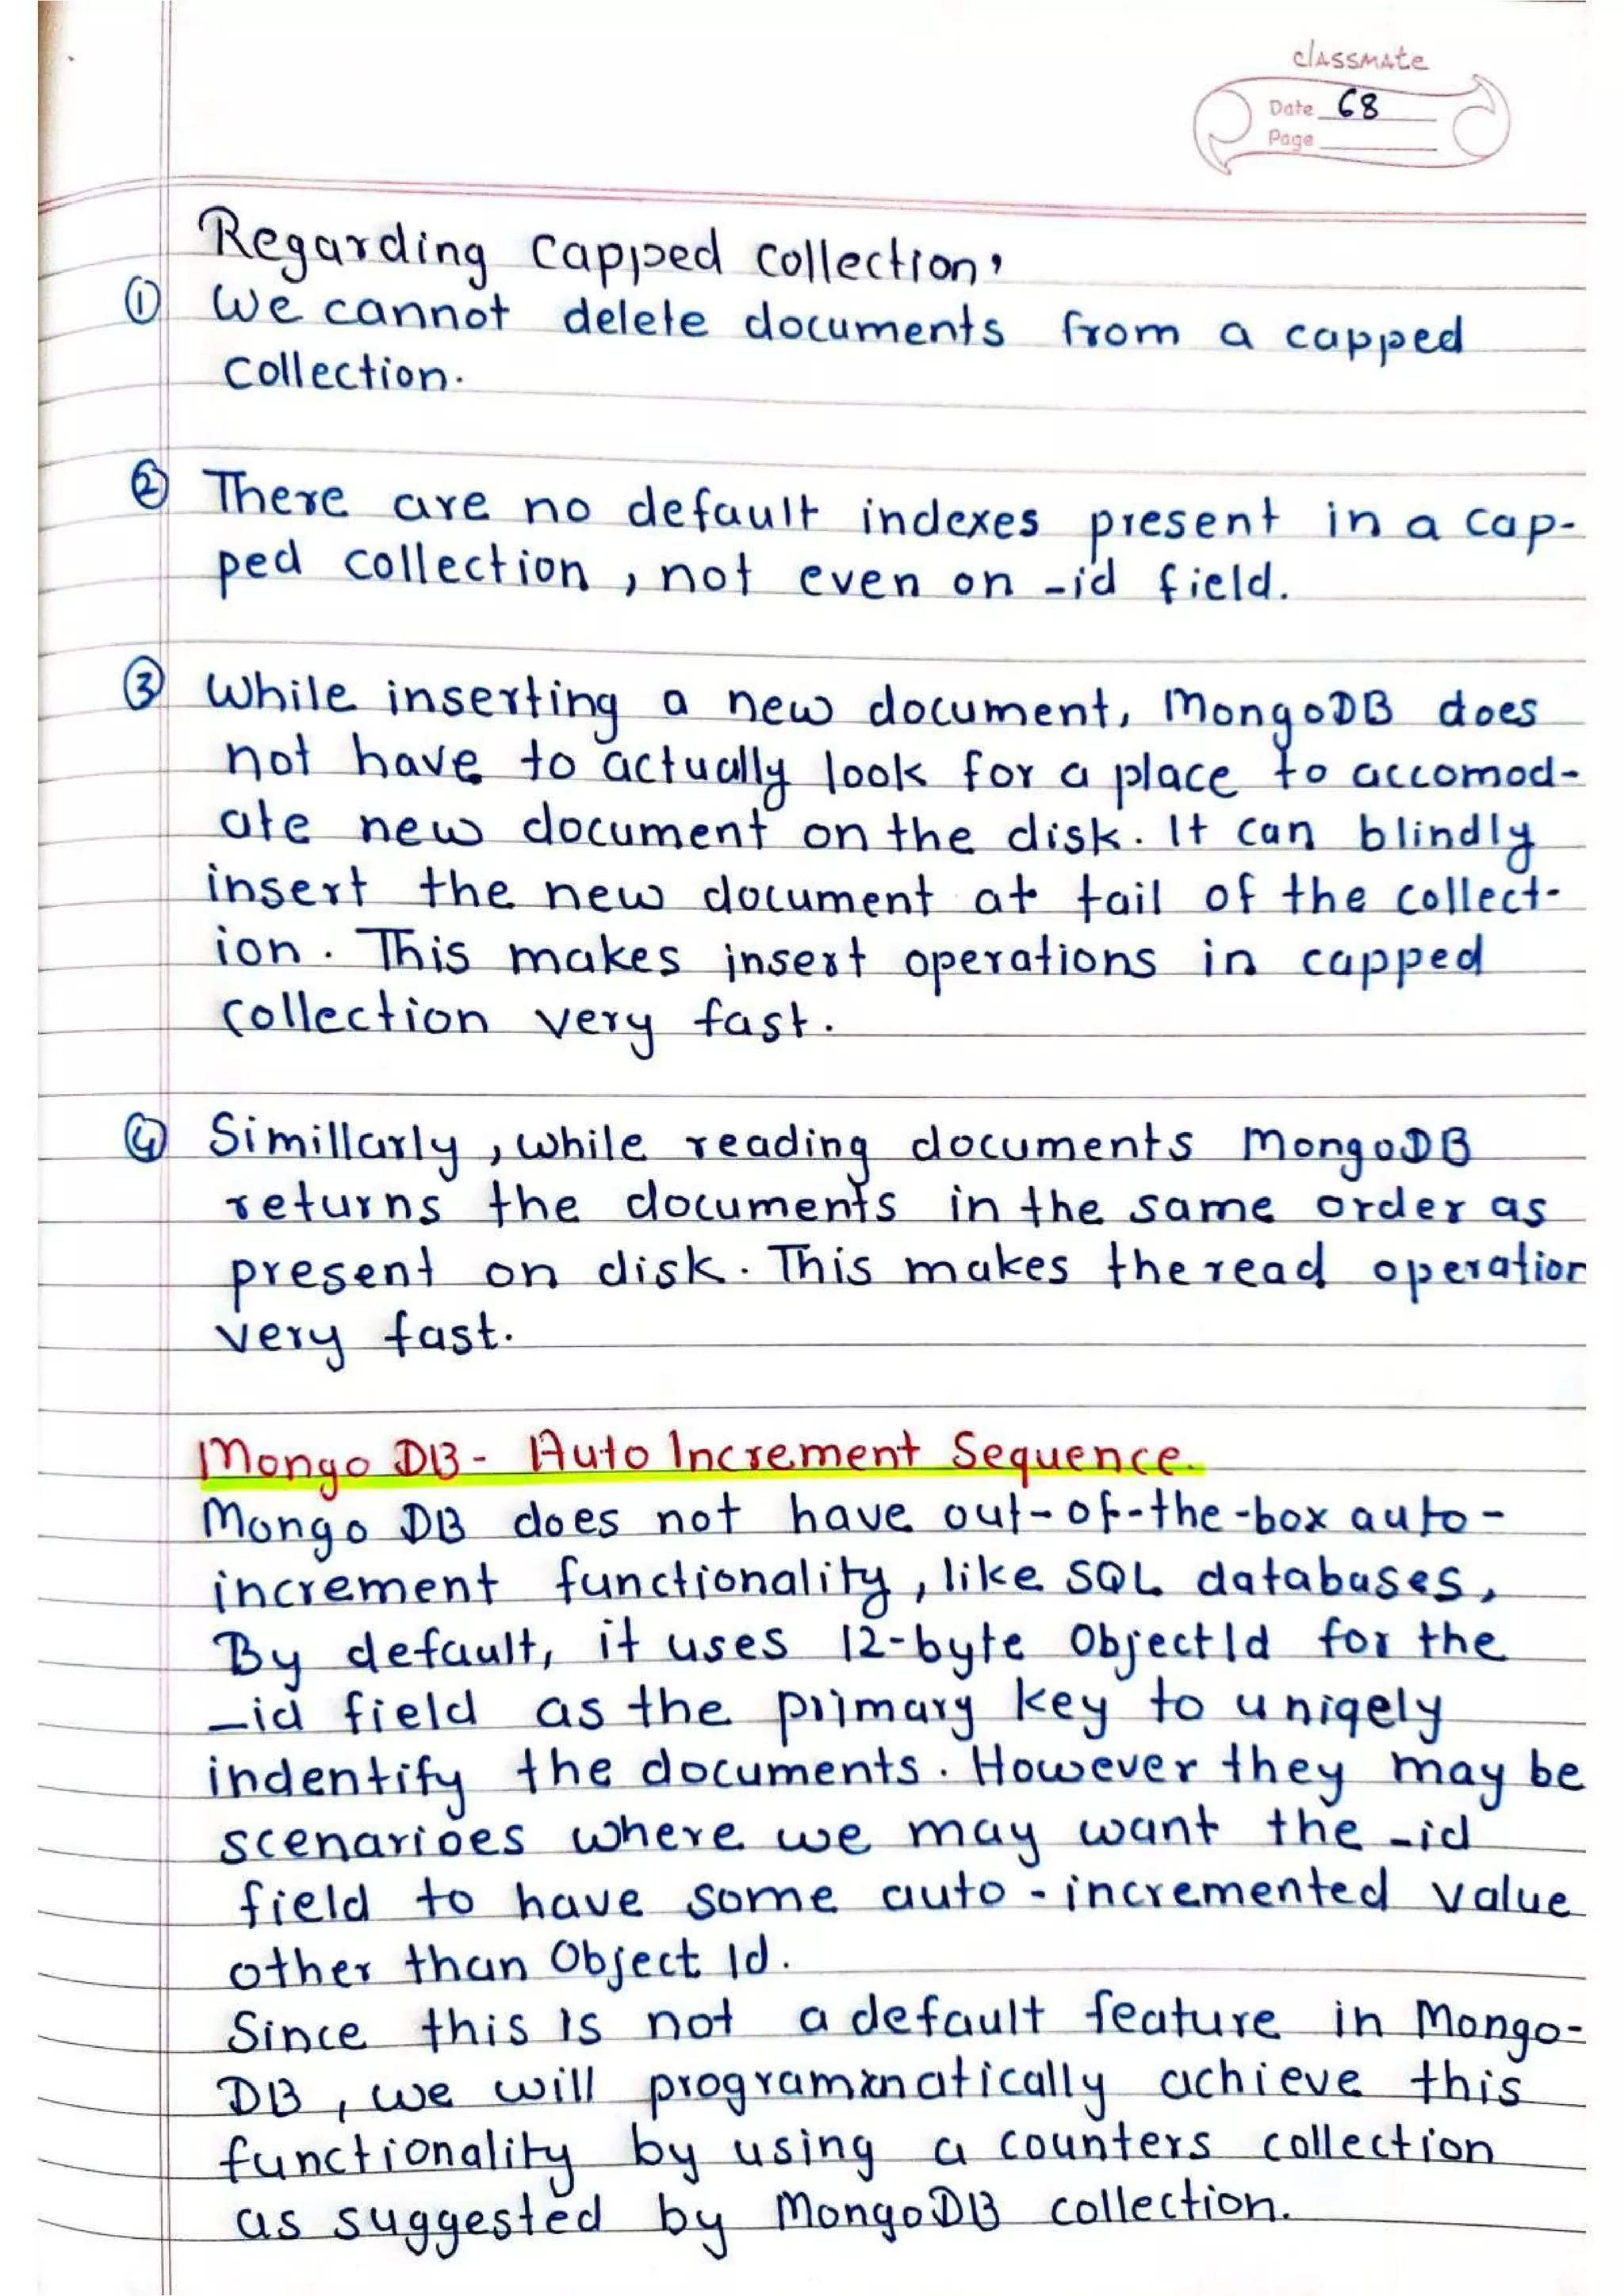 classmate
Date 68
Page
Regarding capped collection,
① We cannot delete documents from a capped
collection.
② There are no default indexes present in a cap-
ped collection, not even on -id field.
③ While inserting a new document, MongoDB does
not have to actually look for a place to accomod-
ate new document on the disk. It can blindly
insert the new document at tail of the collect-
ion. This makes insert operations in capped
collection very fast.
④ Simillarly, while reading documents MongoDB
returns the documents in the same order as
present on disk. This makes the read operation
very fast.
Mongo DB - Auto Increment Sequence.
Mongo DB does not have out-of-the-box auto-
increment functionality, like SQL databases,
By default, it uses 12-byte ObjectId for the
_id field as the primary key to uniqely
indentify the documents. However they may be
scenarioes where we may want the -id
field to have some auto-incremented value
other than Object Id.
Since this is not a default feature in Mongo-
DB, we will programmatically achieve this
functionality by using a counters collection
as suggested by MongoDB collection.